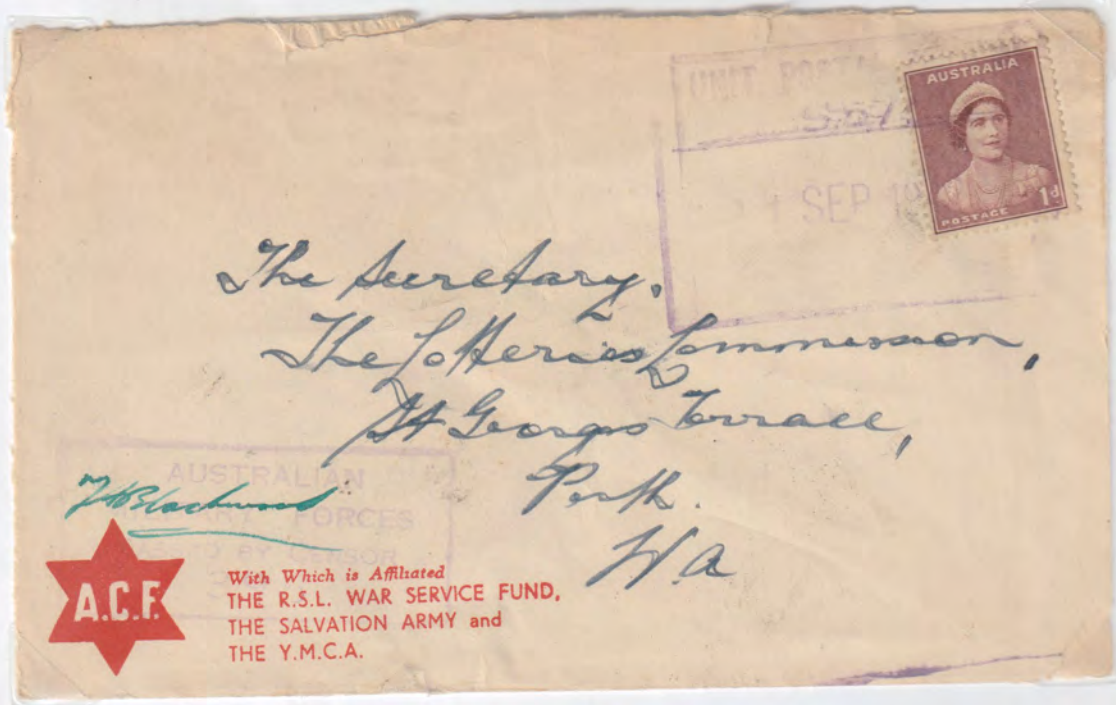 UNIT POSTAL
SEP 19
AUSTRALIA
POSTAGE 1d
The Secretary,
The Lotteries Commission,
St Georges Terrace,
Perth.
W.A
AUSTRALIAN
MILITARY FORCES
PASSED BY CENSOR
A.C.F.
With Which is Affiliated
THE R.S.L. WAR SERVICE FUND,
THE SALVATION ARMY and
THE Y.M.C.A.